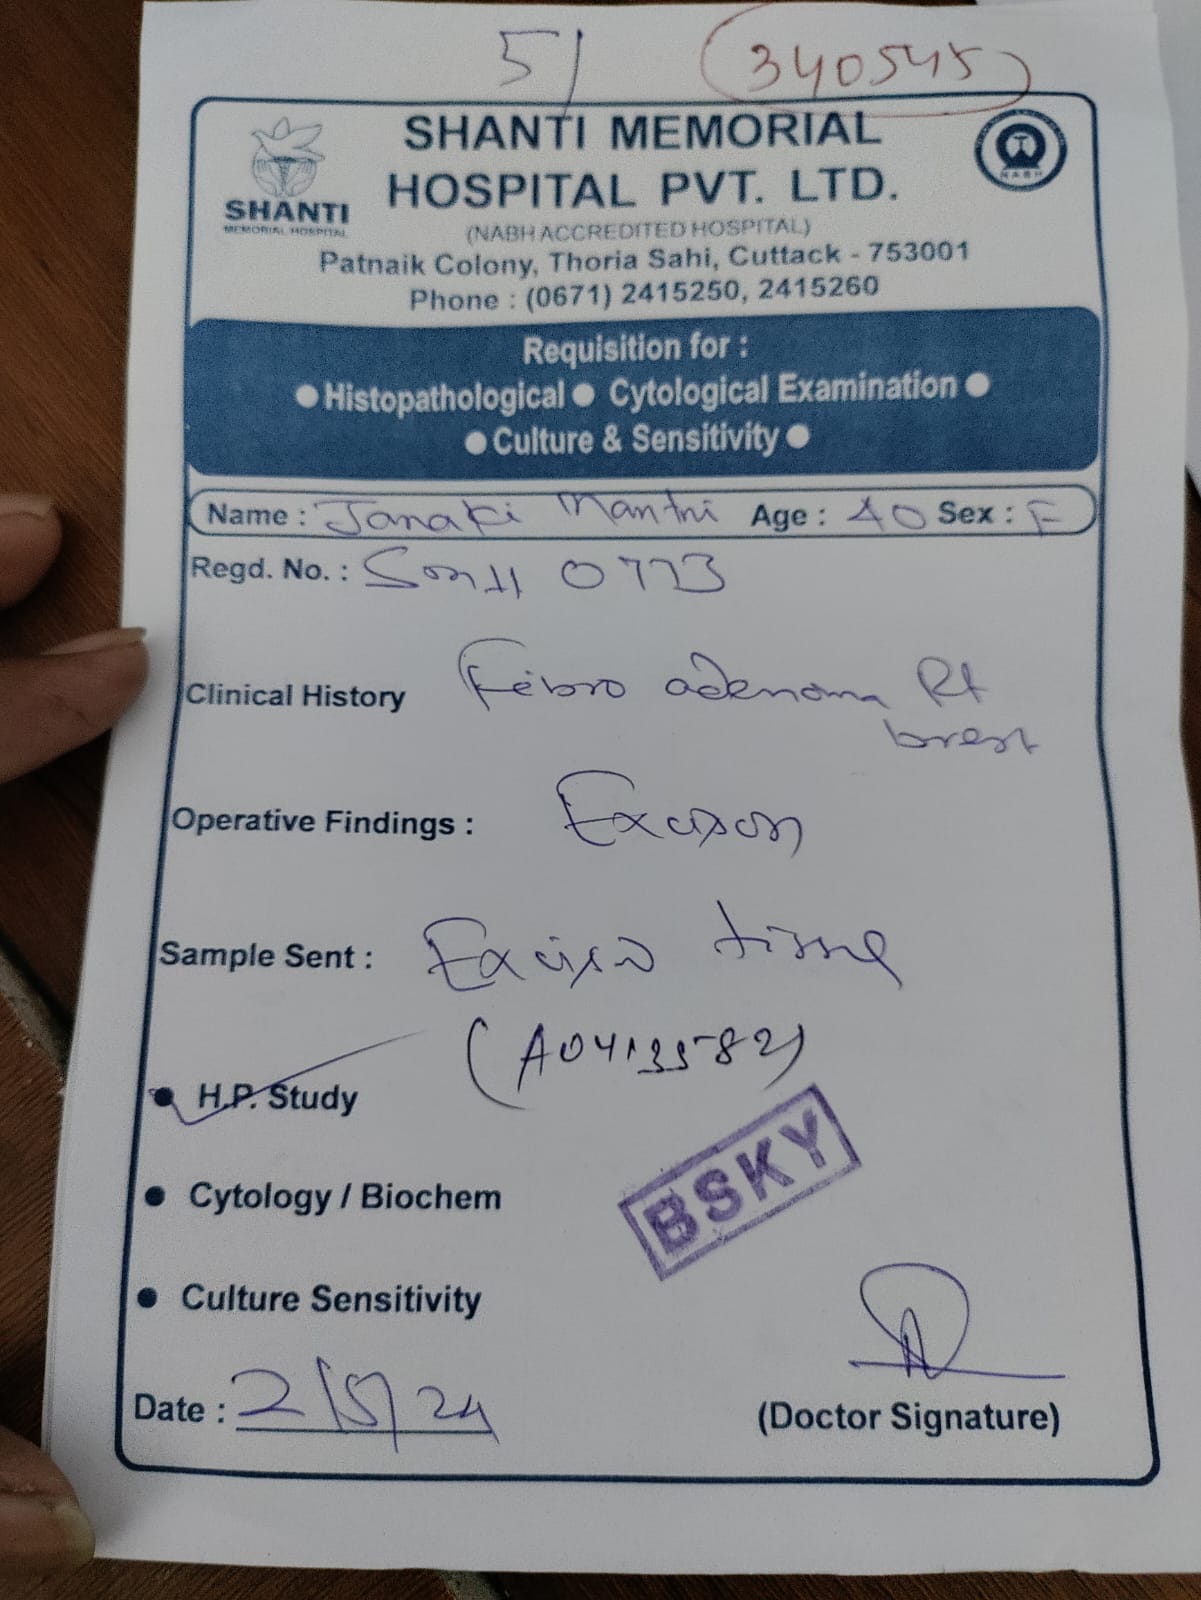 5/ 340545
SHANTI MEMORIAL
HOSPITAL PVT. LTD.
SHANTI
MEMORIAL HOSPITAL
NABH
(NABH ACCREDITED HOSPITAL)
Patnaik Colony, Thoria Sahi, Cuttack - 753001
Phone : (0671) 2415250, 2415260
Requisition for :
● Histopathological ● Cytological Examination ●
● Culture & Sensitivity ●
Name : Janaki Mantri Age : 40 Sex : F
Regd. No. : SMH 0773
Clinical History Fibro adenoma Rt
brest
Operative Findings : Excison
Sample Sent : tissue
(A0413582)
● H.P. Study
● Cytology / Biochem
BSKY
● Culture Sensitivity
Date : 2/5/24
(Doctor Signature)